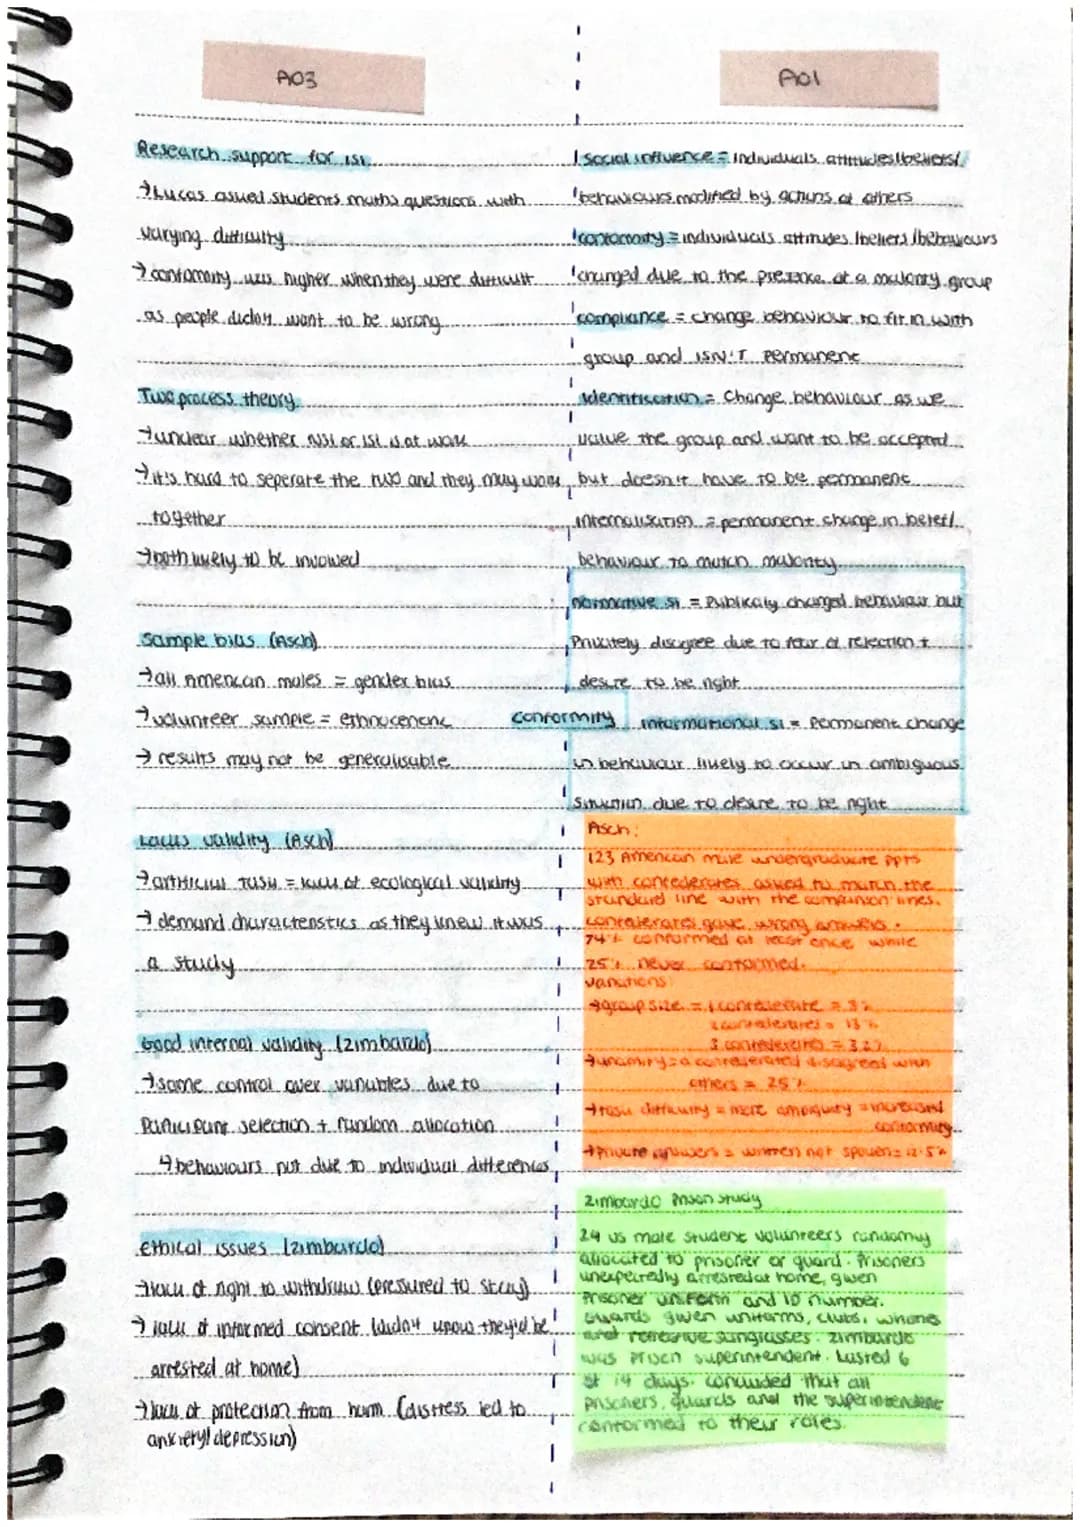 AO3
Research support for ISI
→Lucas asked students maths questions with
varying difficulty
→conformity was higher when they were difficult
as people didn't want to be wrong
Two process theory
→unclear whether NSI or ISI is at work
→it's hard to seperate the two and they may work
together
→both likely to be involved
Sample bias (Asch)
→all American males = gender bias
→volunteer sample = ethnocentric
→results may not be generalisable
Lacks validity (Asch)
→artificial task = lack of ecological validity
→demand characteristics as they knew it was
a study
Good internal validity (zimbardo)
→some control over variables due to
participant selection + random allocation
↳behaviours not due to individual differences
Ethical issues (zimbardo)
→lack of right to withdraw (pressured to stay)
→lack of informed consent (didn't know they'd be
arrested at home)
→lack of protection from harm (distress led to
anxiety/depression)
AO1
Social influence = individuals attitudes/beliefs/
behaviours modified by actions of others
conformity = individuals attitudes/beliefs/behaviours
changed due to the presence of a majority group
compliance = change behaviour to fit in with
group and ISN'T permanent
identification = change behaviour as we
value the group and want to be accepted
but doesn't have to be permanent
internalisation = permanent change in belief/
behaviour to match majority
normative SI = Publically changed behaviour but
Privately disagree due to fear of rejection +
desire to be right
conformity
informational SI = permanent change
in behaviour likely to occur in ambiguous
situation due to desire to be right
Asch:
123 American male undergraduate ppts
with confederates asked to match the
standard line with the comparison lines.
confederates gave wrong answers.
74% conformed at least once while
25% never conformed.
variations:
→group size = 1 confederate = 3%
2 confederates = 13%
3 confederates = 32%
→unanimity = a confederated disagreed with
others = 25%
→task difficulty = more ambiguity = increased
conformity
→Private answers = written not spoken = 12.5%
Zimbardo Prison Study
24 US male student volunteers randomly
allocated to prisoner or guard. Prisoners
unexpectedly arrested at home, given
prisoner uniform and ID number.
Guards given uniforms, clubs, whistles
and reflective sunglasses. zimbardo
was prison superintendent. Lasted 6
of 14 days. concluded that all
prisoners, guards and the superintendent
conformed to their roles.